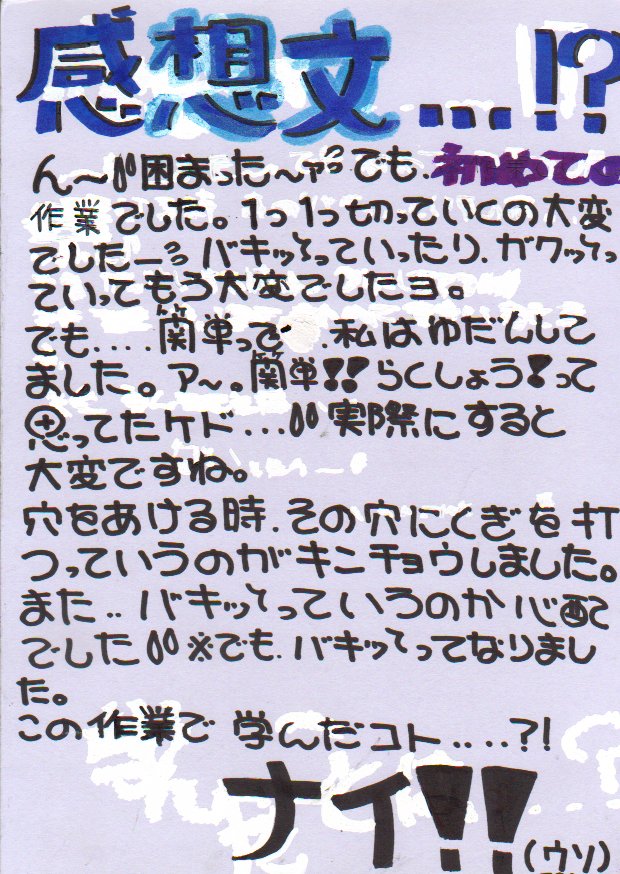 感想文...!?
ん～困まった～ァっでも.初めての
作業でした。1つ1つ切っていくの大変
でしたーっバキッっていったり、ガクッっ
ていってもう大変でしたヨ。
でも....簡単って..私はゆだんして
ました。ア～。簡単!!らくしょう!って
思ってたケド...実際にすると
大変ですね。
穴をあける時、その穴にくぎを打
つっていうのがキンチョウしました。
また..バキッっていうのが心配
でした※でも、バキッってなりまし
た。
この作業で学んだコト....?!
ナイ!!(ウソ)